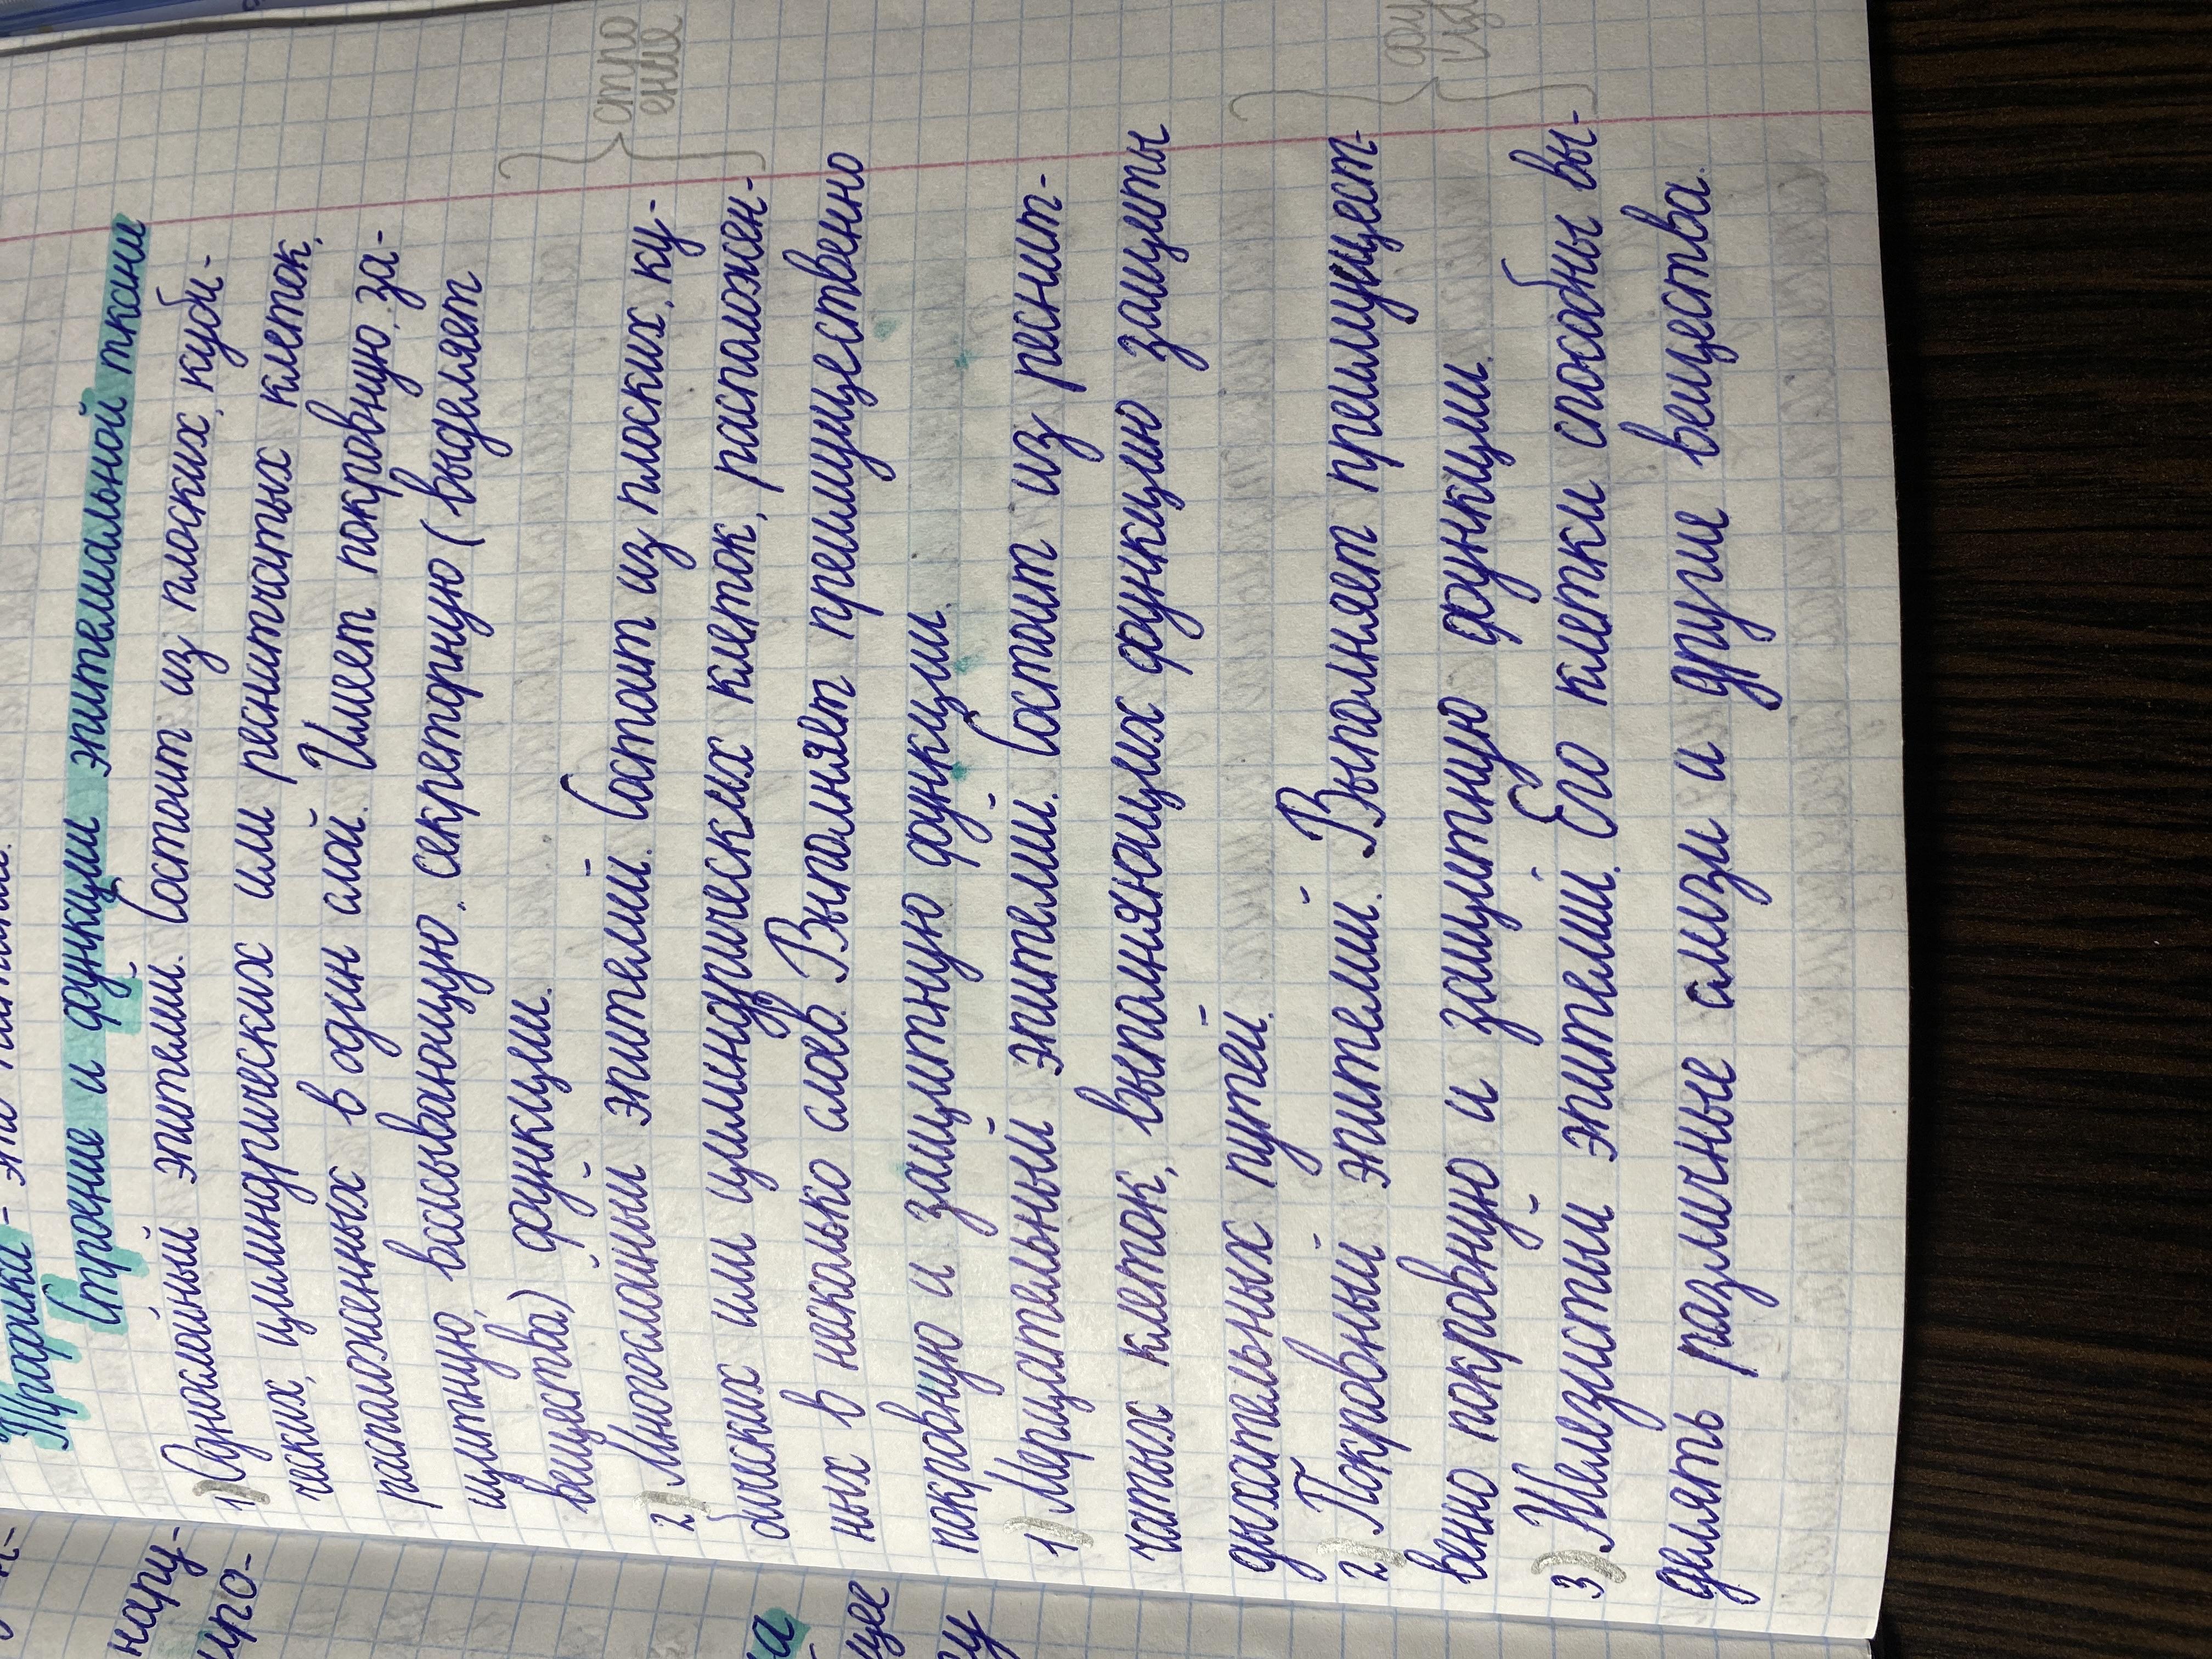 Трофика - это питание.
Строение и функции эпителиальной ткани
1) Однослойный эпителий. Состоит из плоских, куби-
ческих, цилиндрических или реснитчатых клеток,
расположенных в один слой. Имеет покровную, за-
щитную, всасывающую, секреторную (выделяет
вещества) функции.
2) Многослойный эпителий. Состоит из плоских, ку-
бических или цилиндрических клеток, расположен-
ных в несколько слоёв. Выполняет преимущественно
покровную и защитную функции.
строение
1) Мерцательный эпителий. Состоит из реснит-
чатых клеток, выполняющих функцию защиты
дыхательных путей.
2) Покровный эпителий. Выполняет преимущест-
венно покровную и защитную функции.
3) Железистый эпителий. Его клетки способны вы-
делять различные слизи и другие вещества.
нару-